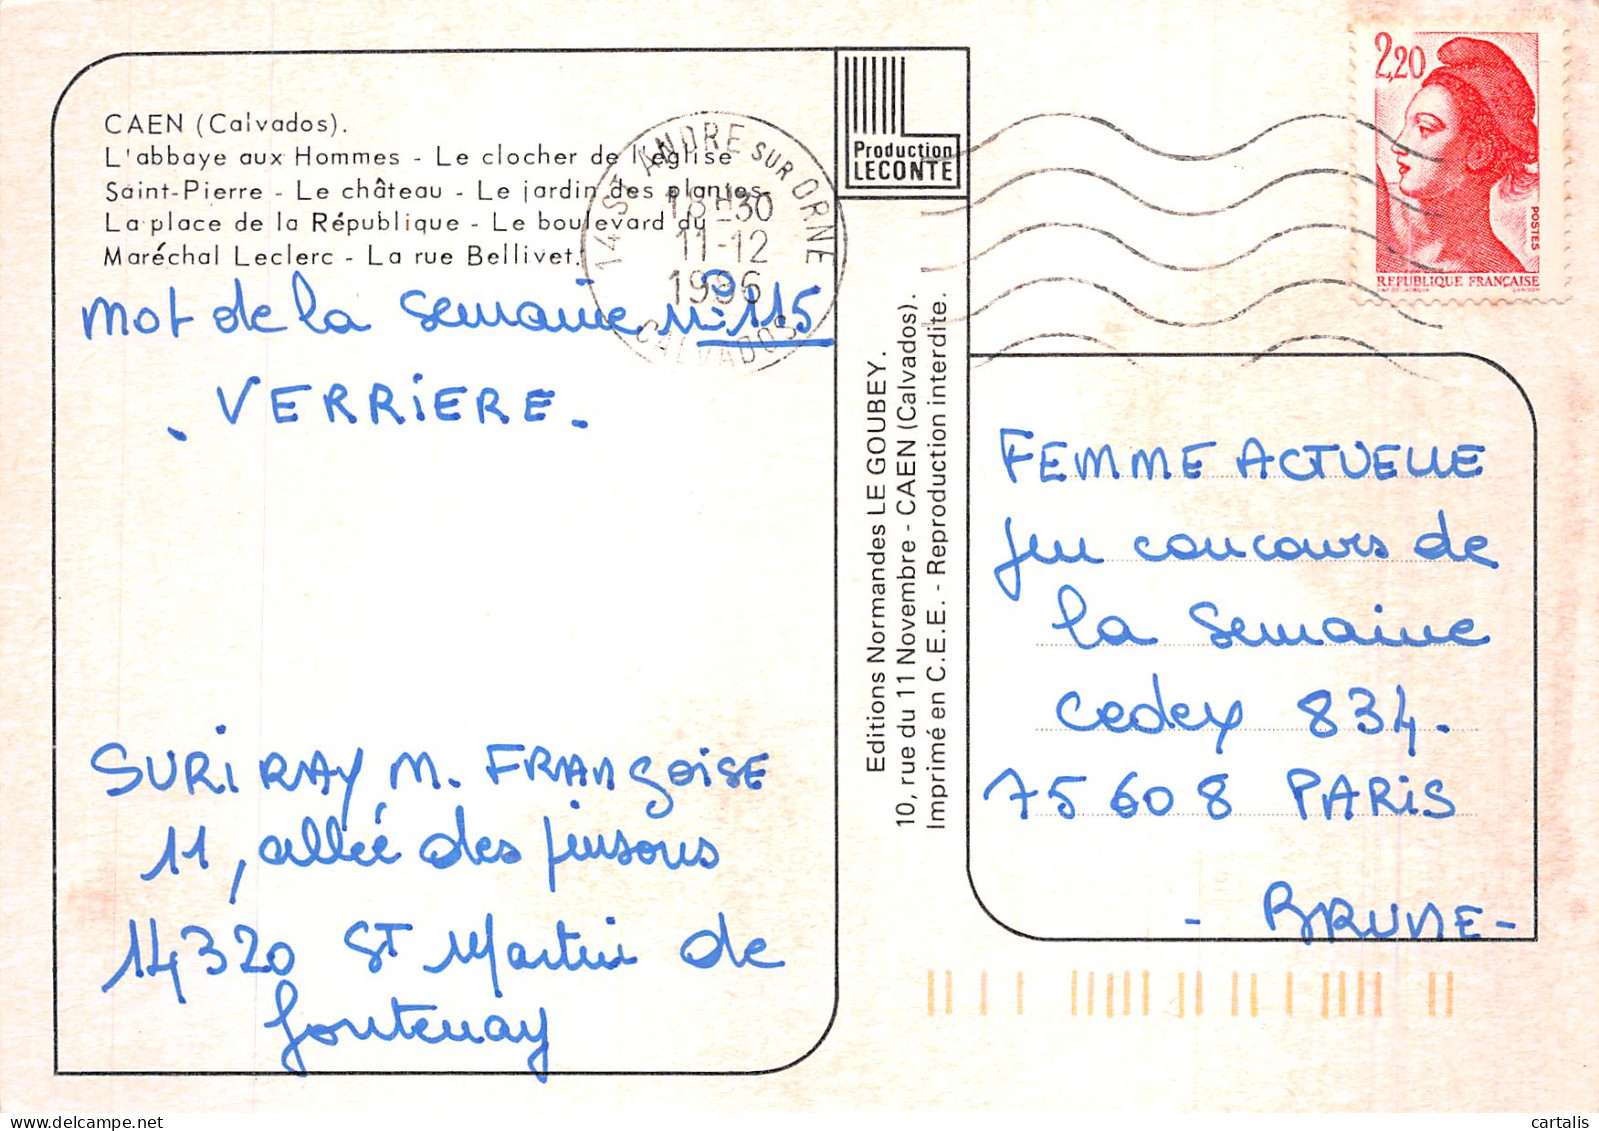 CAEN (Calvados).
L'abbaye aux Hommes - Le clocher de l'église
Saint-Pierre - Le château - Le jardin des plantes-
La place de la République - Le boulevard du
Maréchal Leclerc - La rue Bellivet.
mot de la semaine n° 115
. VERRiERE.
SURiRAY M. FRANÇOiSE
11, allée des pinsons
14320 ST Martin de
fontenay
14 ST ANDRE SUR ORNE
18H30
11-12
1996
CALVADOS
Production
LECONTE
Editions Normandes LE GOUBEY.
10, rue du 11 Novembre - CAEN (Calvados).
Imprimé en C.E.E. - Reproduction interdite.
2,20
POSTES
REPUBLIQUE FRANÇAISE
FEMME ACTUELLE
jeu concours de
la semaine
cedex 834.
75608 PARiS
- BRUNE -
cartalis